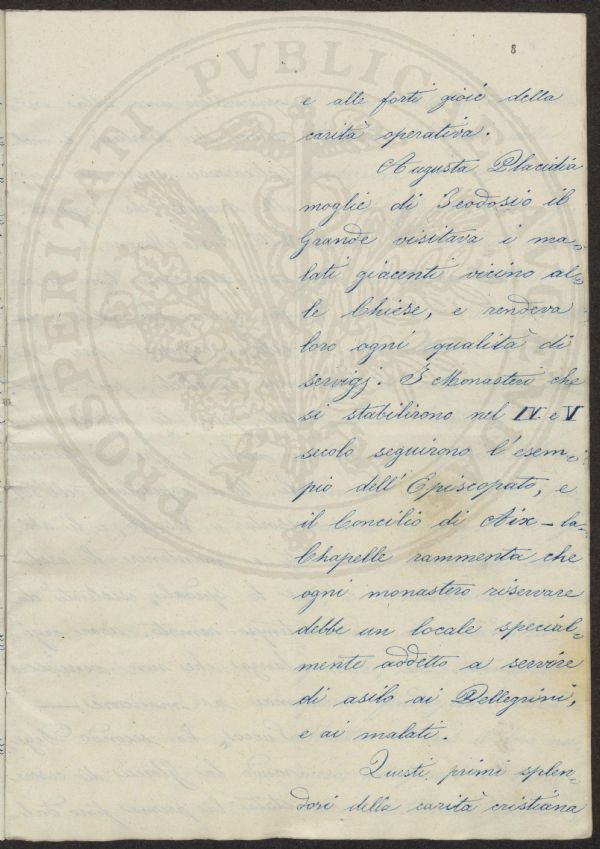 8
e alle forti gioie della
carità operativa.
Augusta Placidia
moglie di Teodosio il
Grande visitava i ma=
lati giacenti vicino al=
le Chiese, e rendeva
loro ogni qualità di
servigj. I Monasteri che
si stabilirono nel IV e V
secolo seguirono l'esem=
pio dell'Episcopato, e
il Concilio di Aix-la-
Chapelle rammenta che
ogni monastero riservare
debbe un locale special=
mente addetto a servire
di asilo ai Pellegrini,
e ai malati.
Questi primi splen=
dori della carità cristiana
PROSPERITATI PVBLICAE